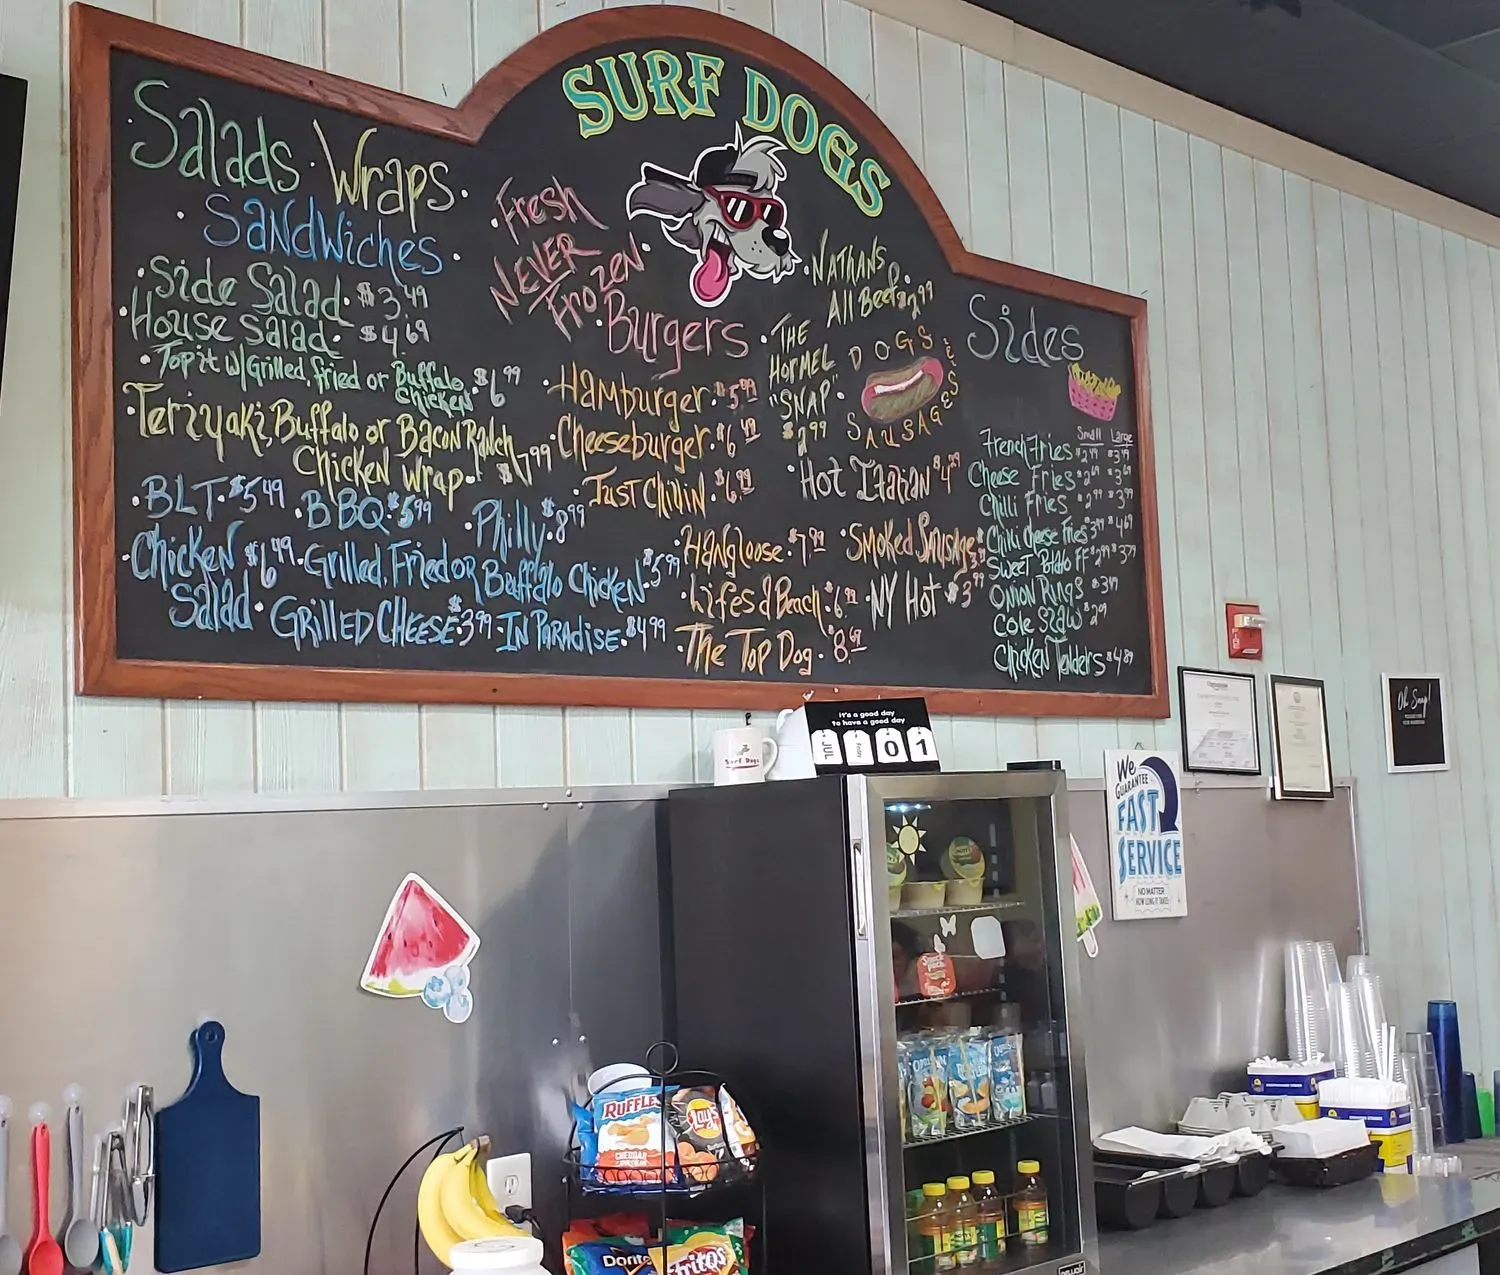 SURF DOGS
Salads · Wraps ·
· Sandwiches ·
· Side Salad · $3.49
· House Salad · $4.69
· Top it w/ Grilled, Fried or Buffalo
Chicken · $6.99
· Teriyaki, Buffalo or Bacon Ranch
Chicken Wrap · $7.99
· BLT · $5.49
· BBQ · $5.99
· Philly · $8.99
· Chicken
Salad · $6.49
· Grilled, Fried or Buffalo Chicken · $5.99
· Grilled Cheese · $3.99
· In Paradise · $4.99
· Fresh
NEVER
Frozen
· Burgers
· Hamburger · $5.99
· Cheeseburger · $6.49
· Just Chillin · $6.99
· Hangloose · $7.99
· Lifes a Beach · $6.99
· The Top Dog · $8.69
· NATHANS
All Beef · $2.99
· THE
HORMEL
"SNAP" ·
$2.99
DOGS
&
SAUSAGES
· Hot Italian $4.29
· Smoked Sausage
· NY Hot · $3.99
Sides
Small Large
French Fries $2.49 $3.49
Cheese Fries $2.69 $3.69
Chili Fries $2.99 $3.99
Chili Cheese Fries $3.99 $4.69
Sweet Potato FF $2.99 $3.79
Onion Rings $3.49
Cole Slaw $2.09
Chicken Tenders $4.89
Surf Dogs
it's a good day
to have a good day
JUL
Friday
0
1
We
GUARANTEE
FAST
SERVICE
NO MATTER
HOW LONG IT TAKES!
Oh Snap!
FIRE
RUFFLES
CHEDDAR
Lay's
Doritos
Fritos
Snack
Pack
CAPRI SUN
newair